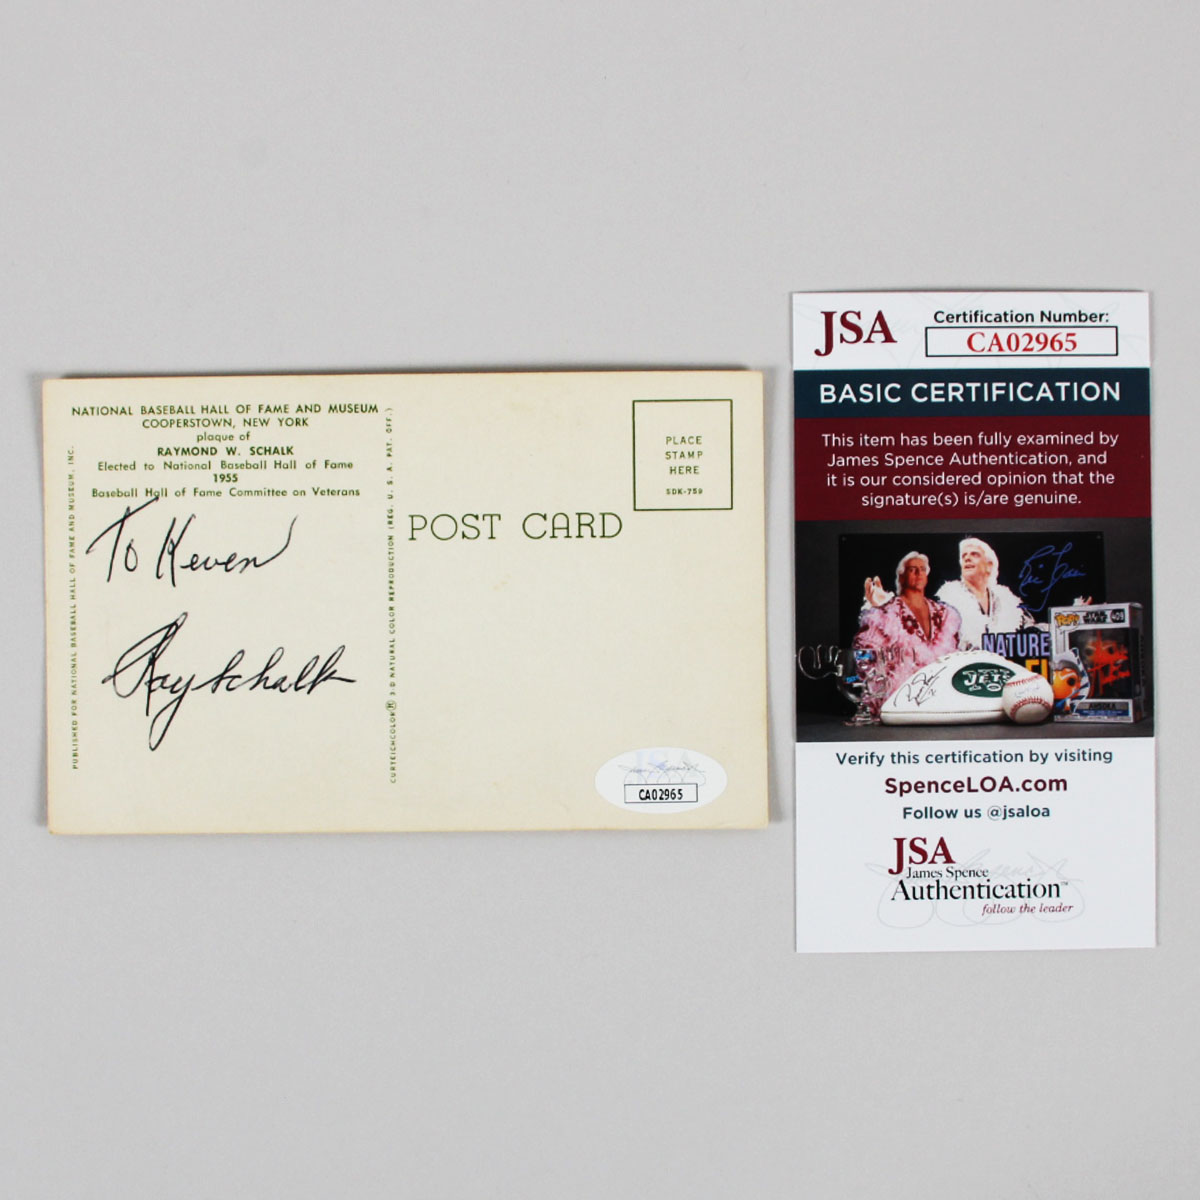 NATIONAL BASEBALL HALL OF FAME AND MUSEUM
COOPERSTOWN, NEW YORK
plaque of
RAYMOND W. SCHALK
Elected to National Baseball Hall of Fame
1955
Baseball Hall of Fame Committee on Veterans
To Keven
Ray Schalk
PUBLISHED FOR NATIONAL BASEBALL HALL OF FAME AND MUSEUM, INC.
CURTEICHCOLOR® 3-D NATURAL COLOR REPRODUCTION (REG. U. S. A. PAT. OFF.)
POST CARD
PLACE
STAMP
HERE
SDK-759
CA02965
JSA
Certification Number:
CA02965
BASIC CERTIFICATION
This item has been fully examined by
James Spence Authentication, and
it is our considered opinion that the
signature(s) is/are genuine.
NATURE
JETS
STAR WARS
AHSOKA
Verify this certification by visiting
SpenceLOA.com
Follow us @jsaloa
JSA
James Spence
Authentication™
follow the leader